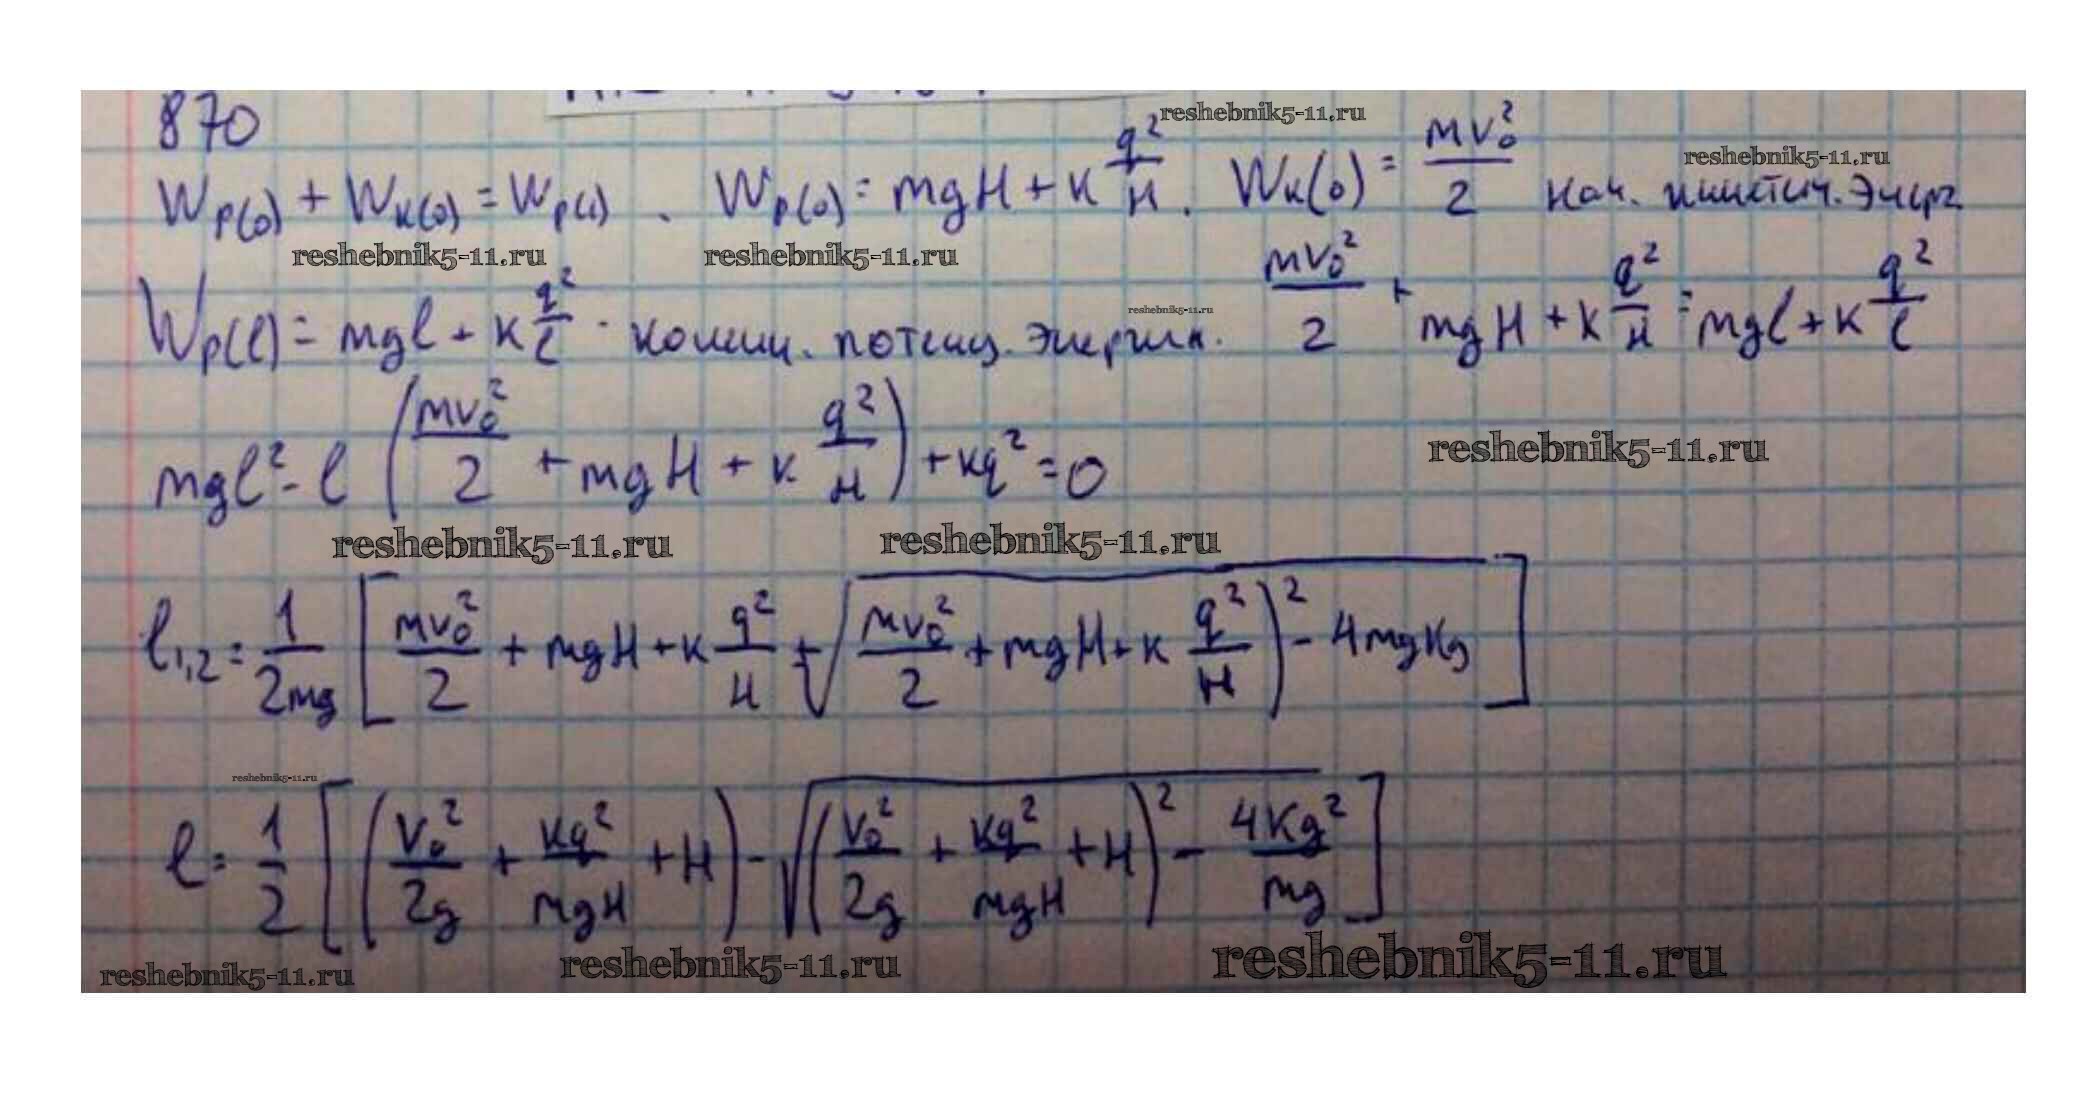 870
reshebnik5-11.ru
reshebnik5-11.ru
W_p(0) + W_к(0) = W_p(l) . W_p(0) = mgH + k q²/H . W_к(0) = mv₀²/2 нач. кинетич. энерг.
reshebnik5-11.ru reshebnik5-11.ru
W_p(l) = mgl + k q²/l · конеч. потенц. энергия. mv₀²/2 + mgH + k q²/H = mgl + k q²/l
reshebnik5-11.ru
mgl² - l (mv₀²/2 + mgH + k q²/H) + kq² = 0
reshebnik5-11.ru
reshebnik5-11.ru reshebnik5-11.ru
l₁,₂ = 1/2mg [mv₀²/2 + mgH + k q²/H ± √(mv₀²/2 + mgH + k q²/H)² - 4mgkq]
reshebnik5-11.ru
l = 1/2 [(v₀²/2g + kq²/mgH + H) - √(v₀²/2g + kq²/mgH + H)² - 4kq²/mg]
reshebnik5-11.ru reshebnik5-11.ru reshebnik5-11.ru